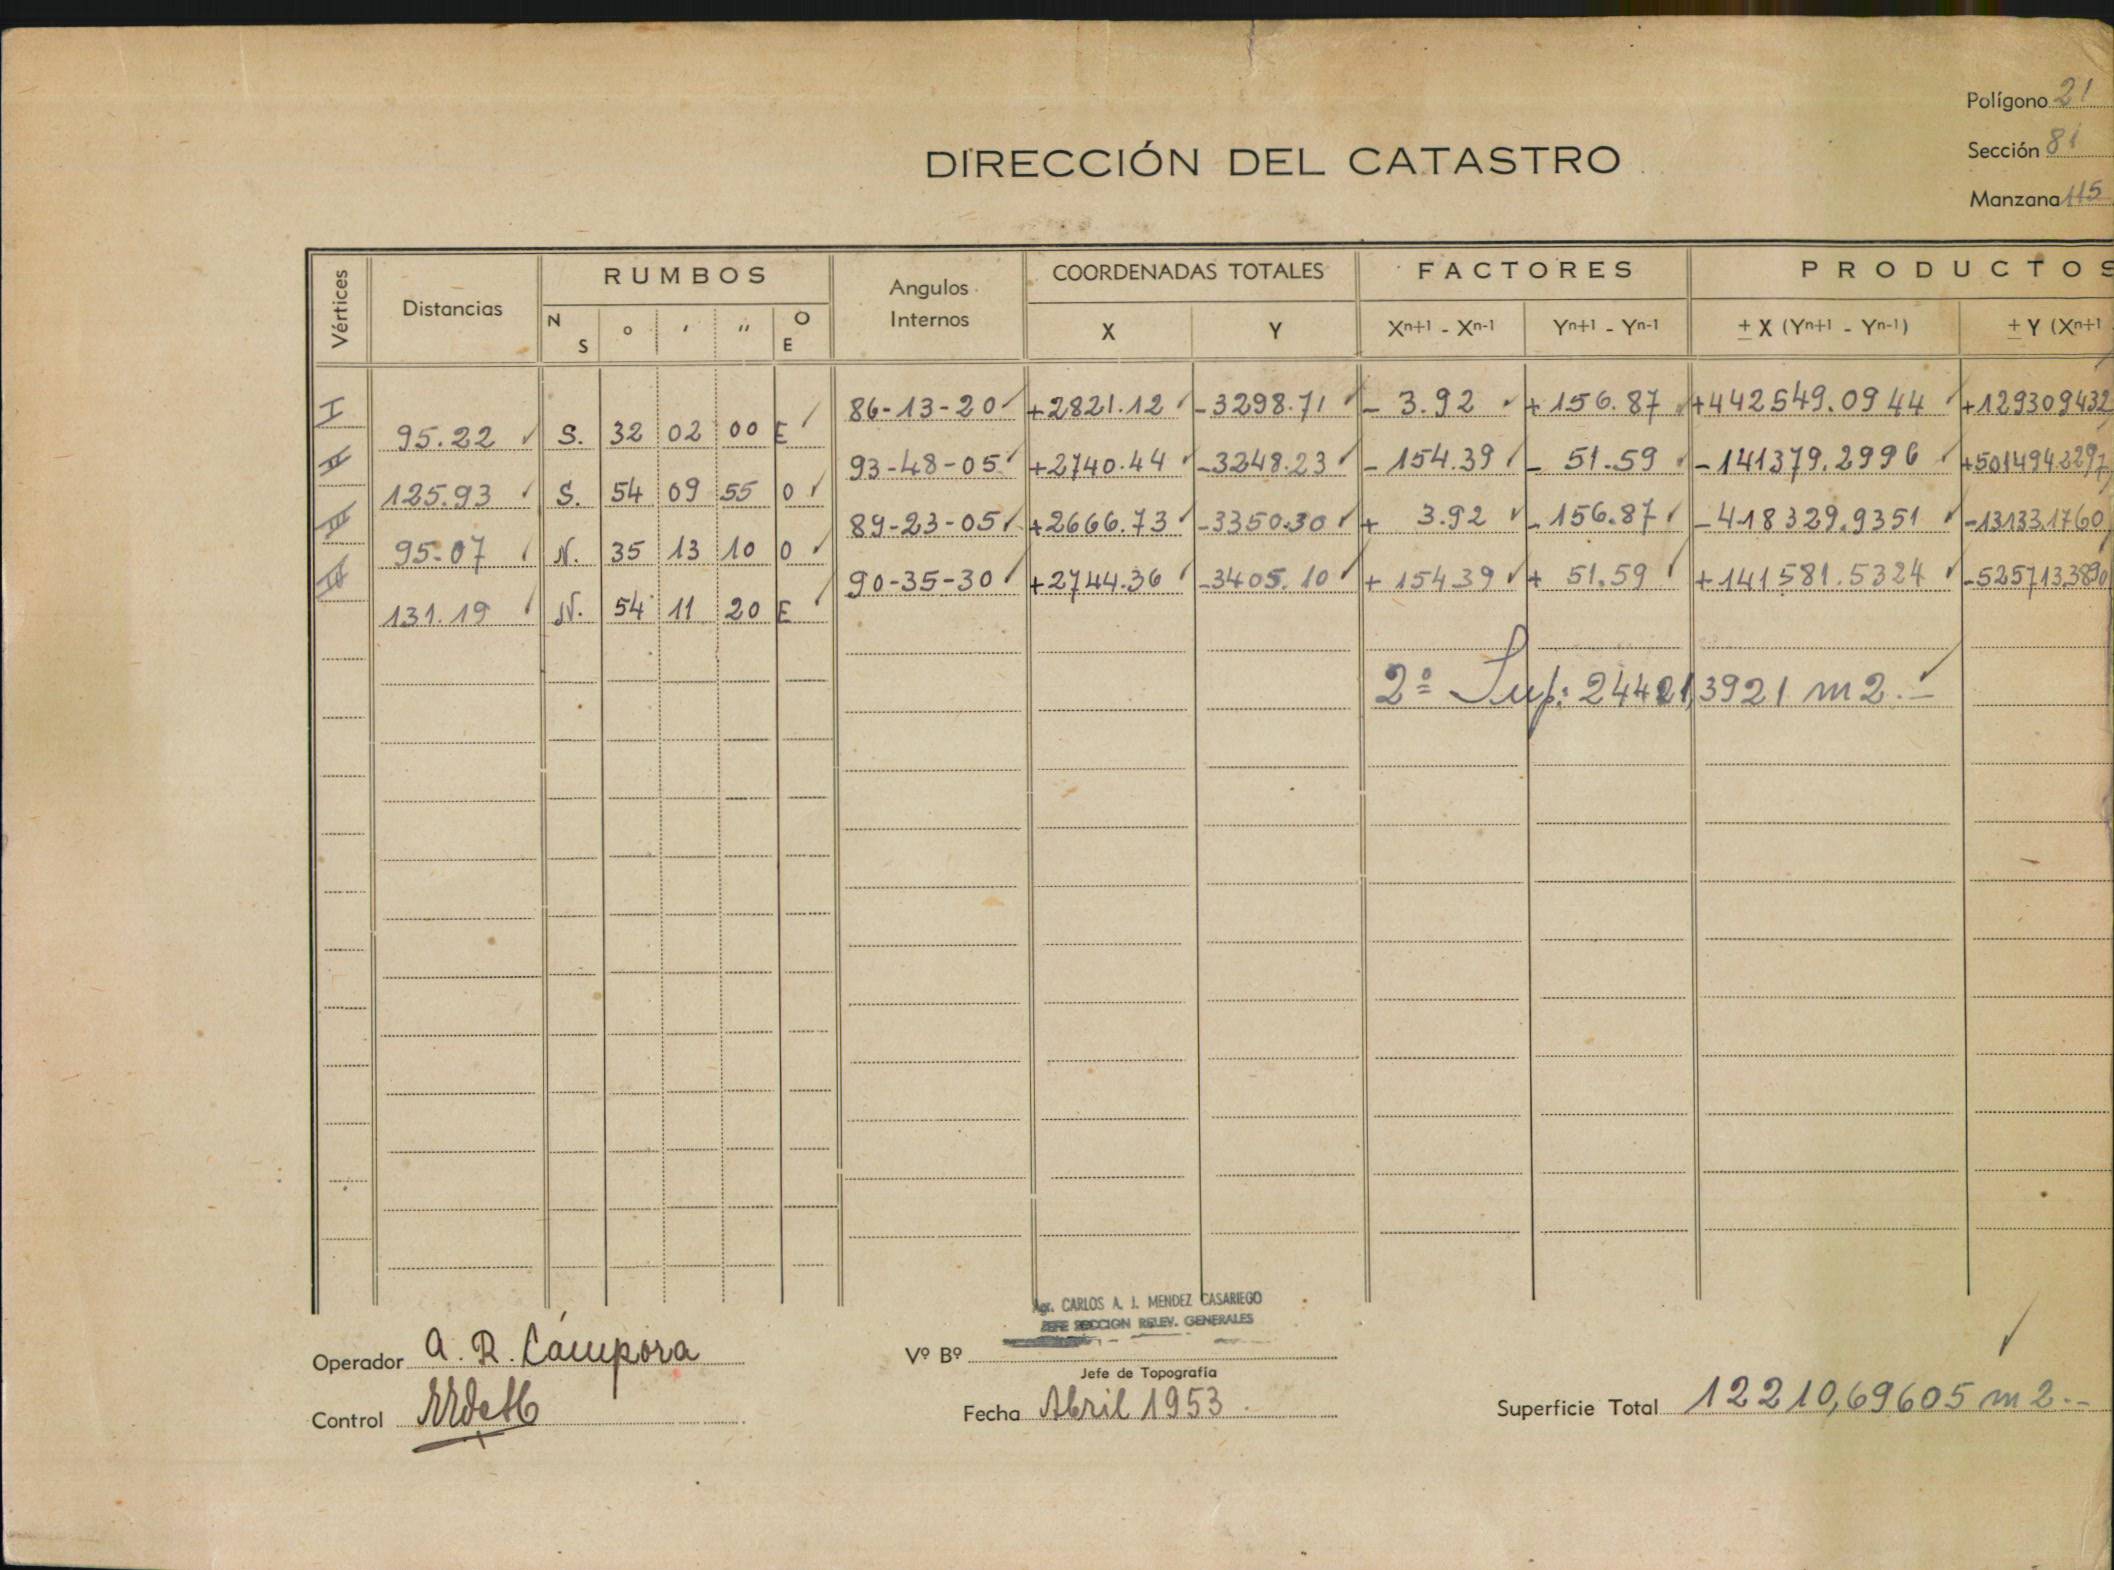 Polígono 21
Sección 81
Manzana 115
DIRECCIÓN DEL CATASTRO
Vértices Distancias RUMBOS Angulos Internos COORDENADAS TOTALES FACTORES PRODUCTOS
N S ° ' " O E X Y Xn+1 - Xn-1 Yn+1 - Yn-1 ± X (Yn+1 - Yn-1) ± Y (Xn+1
I 86-13-20 +2821.12 -3298.71 - 3.92 +156.87 +442549.0944 +12930.9432
95.22 S. 32 02 00 E
II 93-48-05 +2740.44 -3248.23 -154.39 - 51.59 -141379.2996 +501494.2297
125.93 S. 54 09 55 O
III 89-23-05 +2666.73 -3350.30 + 3.92 -156.87 -418329.9351 -13133.1760
95.07 N. 35 13 10 O
IV 90-35-30 +2744.36 -3405.10 +154.39 + 51.59 +141581.5324 -525713.3890
131.19 N. 54 11 20 E
2º Sup: 24421,3921 m2.-
Agr. CARLOS A. J. MENDEZ CASARIEGO
JEFE SECCION RELEV. GENERALES
Operador A. R. Cámpora
Vº Bº
Jefe de Topografía
Control
Fecha Abril 1953.
Superficie Total 12210,69605 m2.-